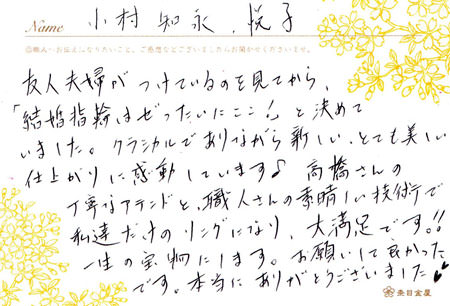 Name 小村 知永、悦子
友人夫婦がつけているのを見てから、
「結婚指輪はぜったいにここ！」と決めて
いました。クラシカルでありながら新しい、とても美しい
仕上がりに感動しています♪ 高橋さんの
丁寧なアテンドと、職人さんの素晴しい技術で
私達だけのリングになり、大満足です!!
一生の宝物にします。お願いして良かった
です。本当にありがとうございました♥
杢目金屋